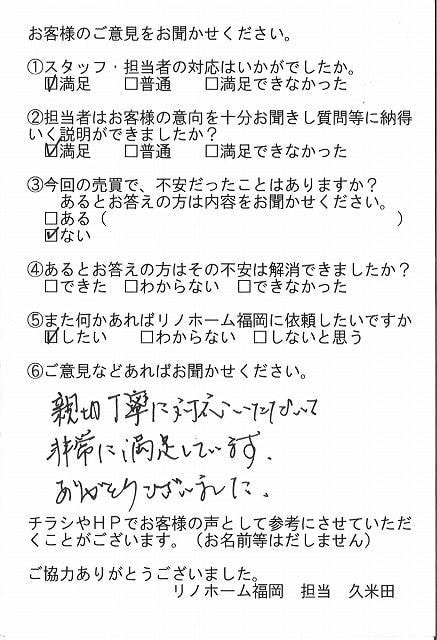 お客様のご意見をお聞かせください。
①スタッフ・担当者の対応はいかがでしたか。
☑満足 □普通 □満足できなかった
②担当者はお客様の意向を十分お聞きし質問等に納得
いく説明ができましたか？
☑満足 □普通 □満足できなかった
③今回の売買で、不安だったことはありますか？
あるとお答えの方は内容をお聞かせください。
□ある（ ）
☑ない
④あるとお答えの方はその不安は解消できましたか？
□できた □わからない □できなかった
⑤また何かあればリノホーム福岡に依頼したいですか
☑したい □わからない □しないと思う
⑥ご意見などあればお聞かせください。
親切丁寧に対応いただいて
非常に満足しています。
ありがとうございました。
チラシやＨＰでお客様の声として参考にさせていただ
くことがございます。（お名前等はだしません）
ご協力ありがとうございました。
リノホーム福岡 担当 久米田